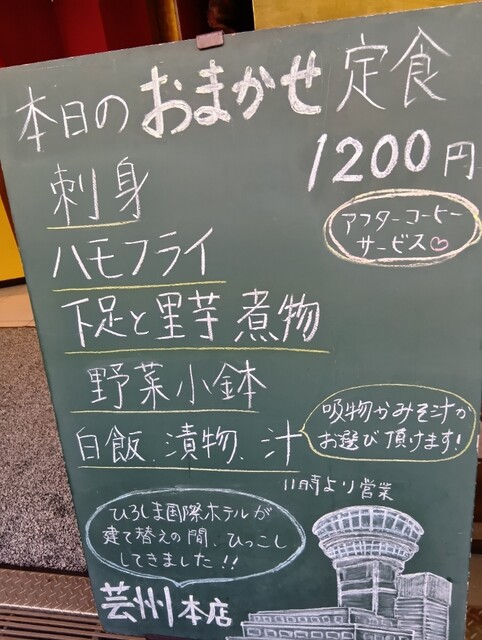 本日のおまかせ定食
1200円
刺身
アフターコーヒー
サービス♡
ハモフライ
下足と里芋煮物
野菜小鉢
白飯、漬物、汁
吸物かみそ汁か
お選び頂けます!
11時より営業
ひろしま国際ホテルが
建て替えの間、ひっこし
してきました!!
芸州本店